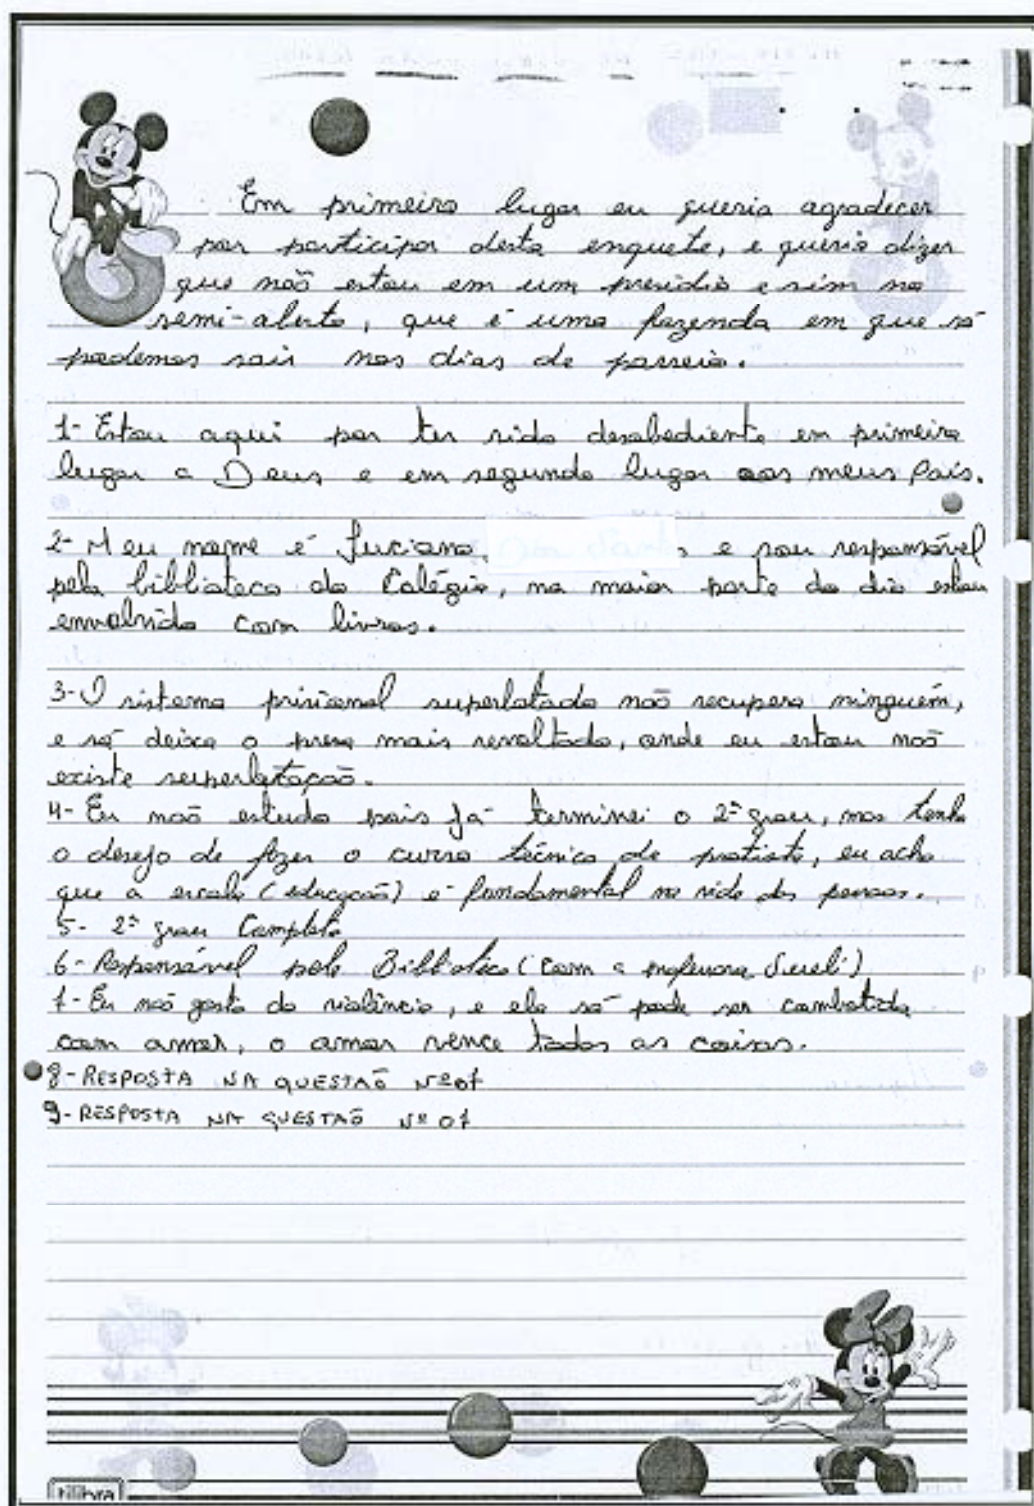 Em primeiro lugar eu queria agradecer
por participar desta enquete, e queria dizer
que não estou em um presídio e sim no
semi-aberto, que é uma fazenda em que só
podemos sair nos dias de passeio.
1- Estou aqui por ter sido desobediente em primeiro
lugar a Deus e em segundo lugar aos meus Pais.
2- Meu nome é Luciano, e sou responsável
pela biblioteca do Colégio, na maior parte do dia estou
envolvido com livros.
3- O sistema prisional superlotado não recupera ninguém,
e só deixa o preso mais revoltado, onde eu estou não
existe superlotação.
4- Eu não estudo pois já terminei o 2º grau, mas tenho
o desejo de fazer o curso técnico de protista, eu acho
que a escola (educação) é fundamental na vida das pessoas.
5- 2º grau Completo
6- Responsável pela Biblioteca (com a professora Sueli)
7- Eu não gosto da violência, e ela só pode ser combatida
com amor, o amor vence todas as coisas.
8- RESPOSTA NA QUESTAÕ Nº 07
9- RESPOSTA NA QUESTAÕ Nº 07
tilibra